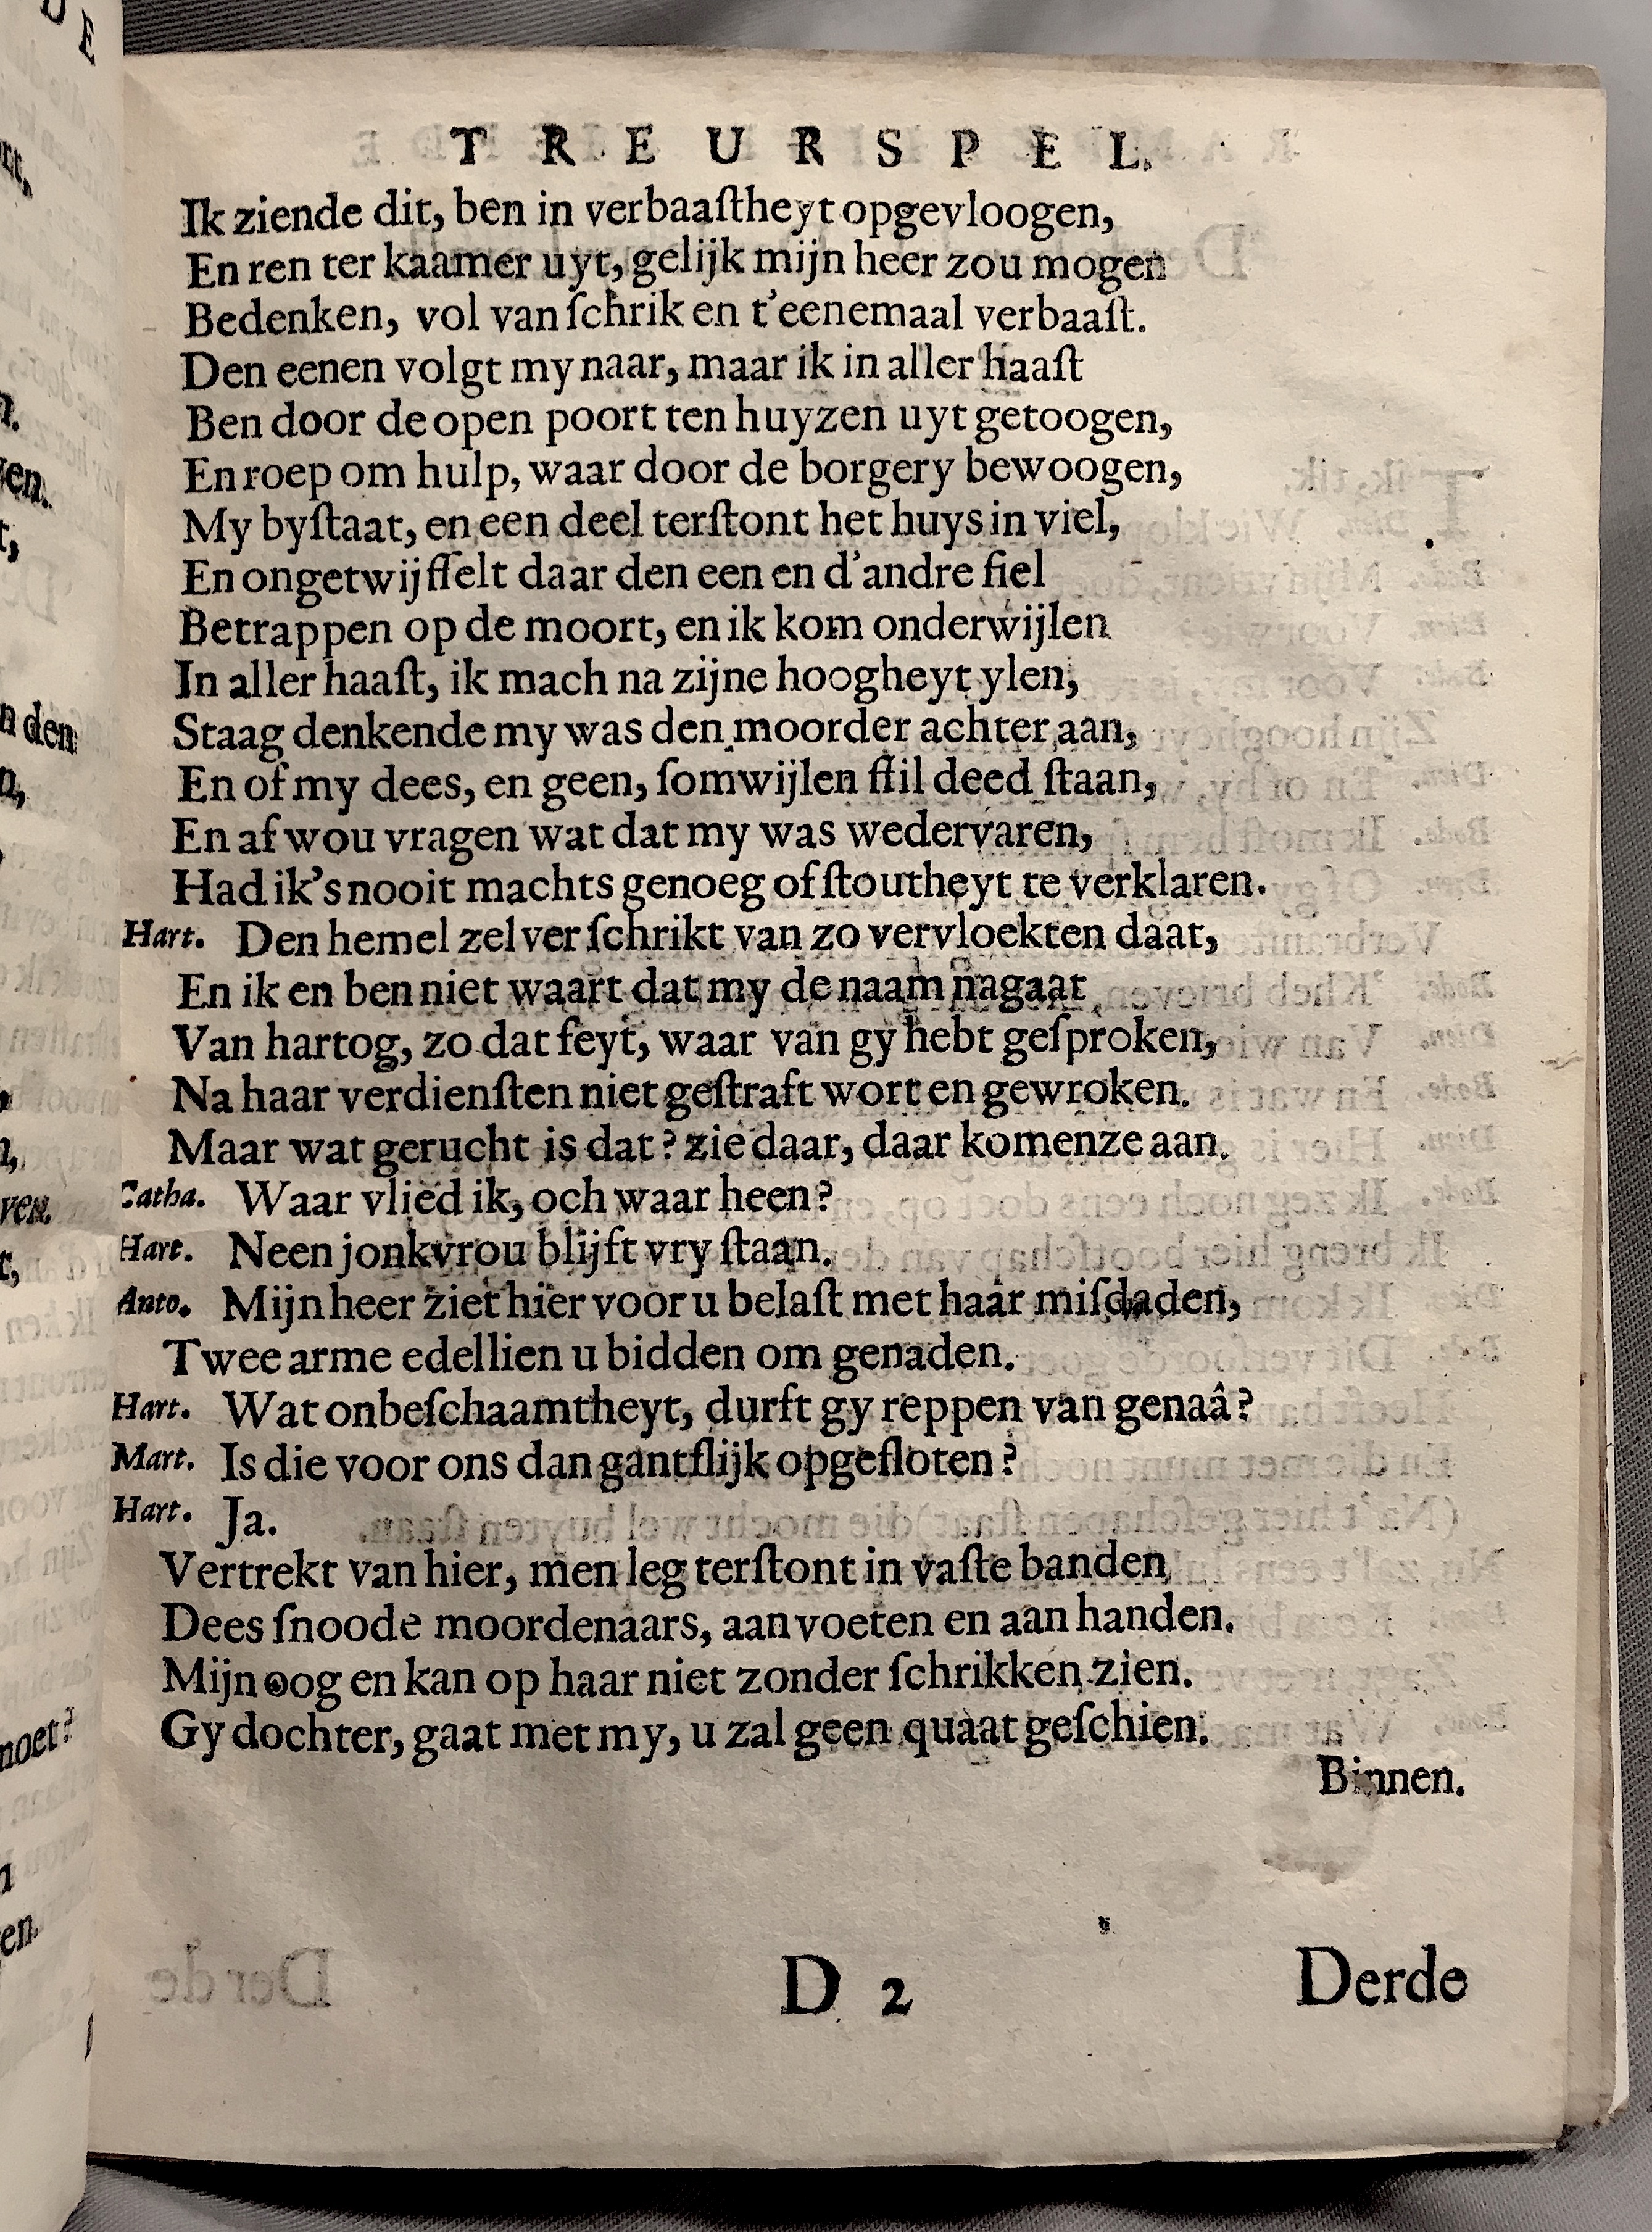 TREURSPEL.
Ik ziende dit, ben in verbaaſtheyt opgevloogen,
En ren ter kaamer uyt, gelijk mijn heer zou mogen
Bedenken, vol van ſchrik en t'eenemaal verbaaſt.
Den eenen volgt my naar, maar ik in aller haaſt
Ben door de open poort ten huyzen uyt getoogen,
En roep om hulp, waar door de borgery bewoogen,
My byſtaat, en een deel terſtont het huys in viel,
En ongetwijffelt daar den een en d'andre fiel
Betrappen op de moort, en ik kom onderwijlen
In aller haaſt, ik mach na zijne hoogheyt ylen,
Staag denkende my was den moorder achter aan,
En of my dees, en geen, ſomwijlen ſtil deed ſtaan,
En af wou vragen wat dat my was wedervaren,
Had ik's nooit machts genoeg of ſtoutheyt te verklaren.
Hart. Den hemel zelver ſchrikt van zo vervloekten daat,
En ik en ben niet waart dat my de naam nagaat
Van hartog, zo dat feyt, waar van gy hebt geſproken,
Na haar verdienſten niet geſtraft wort en gewroken.
Maar wat gerucht is dat? zie daar, daar komen ze aan.
Catha. Waar vlied ik, och waar heen?
Hart. Neen jonkvrou blijft vry ſtaan.
Anto. Mijn heer ziet hier voor u belaſt met haar miſdaden,
Twee arme edellien u bidden om genaden.
Hart. Wat onbeſchaamtheyt, durft gy reppen van genaâ?
Mart. Is die voor ons dan gantſlijk opgeſloten?
Hart. Ja.
Vertrekt van hier, men leg terſtont in vaſte banden
Dees ſnoode moordenaars, aan voeten en aan handen.
Mijn oog en kan op haar niet zonder ſchrikken zien.
Gy dochter, gaat met my, u zal geen quaat geſchien.
Binnen.
D 2
Derde